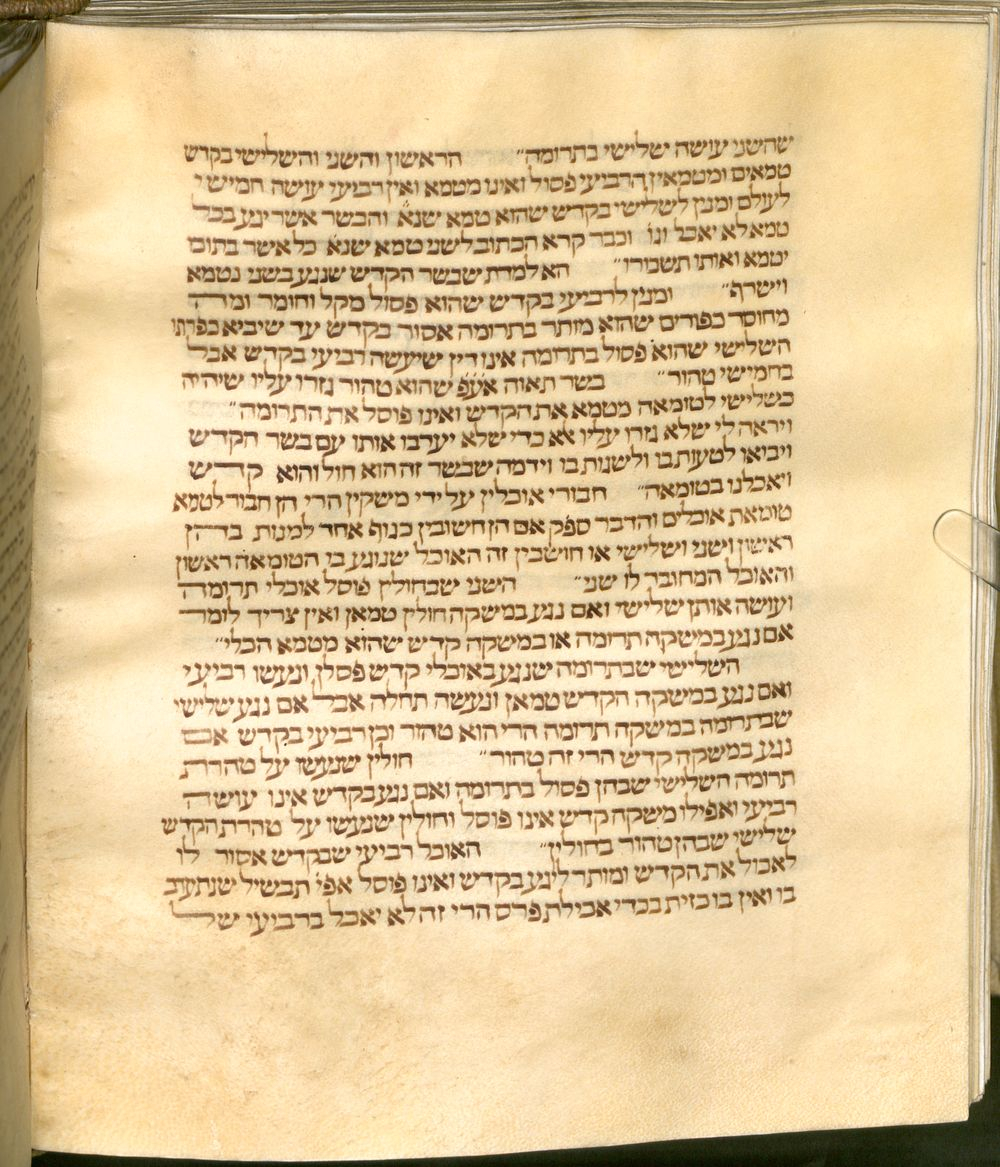 שהשני עושה שלישי בתרומה״ הראשון והשני והשלישי בקדש
טמאים ומטמאין הרביעי פסול ואינו מטמא ואין רביעי עושה חמישי
לעולם ומנין לשלישי בקדש שהוא טמא שנא׳ והבשר אשר יגע בכל
טמא לא יאכל וגו׳ וכבר קרא הכתוב לשני טמא שנא׳ כל אשר בתוכו
יטמא ואותו תשבורו״ הא למדת שבשר הקדש שנגע בשני נטמא
וישרף״ ומנין לרביעי בקדש שהוא פסול מקל וחומר ומה
מחוסר כפורים שהוא מותר בתרומה אסור בקדש עד שיביא כפרתו
השלישי שהוא פסול בתרומה אינו דין שיעשה רביעי בקדש אבל
בחמישי טהור״ בשר תאוה אעפ שהוא טהור גזרו עליו שיהיה
כשלישי לטומאה מטמא את הקדש ואינו פוסל את התרומה״
ויראה לי שלא גזרו עליו אלא כדי שלא יערבו אותו עם בשר הקדש
ויבואו לטעות בו ולשנות בו וידמה שבשר זה הוא חול והוא קדש
ויאכלנו בטומאה״ חבורי אוכלין על ידי משקין הרי הן חבור לטמא
טומאת אוכלים והדבר ספק אם הן חשובין כגוף אחד למנות בהן
ראשון ושני ושלישי או חושבין זה האוכל שנוגע בו הטומאה ראשון
והאוכל המחובר לו שני״ השני שבחולין פוסל אוכלי תרומה
ועושה אותן שלישי ואם נגע במשקה חולין טמאן ואין צריך לומר
אם נגע במשקה תרומה או במשקה קדש שהוא מטמא הכלי״
השלישי שבתרומה שנגע באוכלי קדש פסלן ונעשו רביעי
ואם נגע במשקה הקדש טמאן ונעשה תחלה אבל אם נגע שלישי
שבתרומה במשקה תרומה הרי הוא טהור וכן רביעי בקדש אם
נגע במשקה קדש הרי זה טהור״ חולין שנעשו על טהרת
תרומה השלישי שבהן פסול בתרומה ואם נגע בקדש אינו עושה
רביעי ואפילו משקה קדש אינו פוסל וחולין שנעשו על טהרת הקדש
שלישי שבהן טהור בחולין״ האוכל רביעי שבקדש אסור לו
לאכול את הקדש ומותר ליגע בקדש ואינו פוסל אפי׳ תבשיל שנתערב
בו ואין בו כזית בכדי אכילת פרס הרי זה לא יאכל ברביעי של